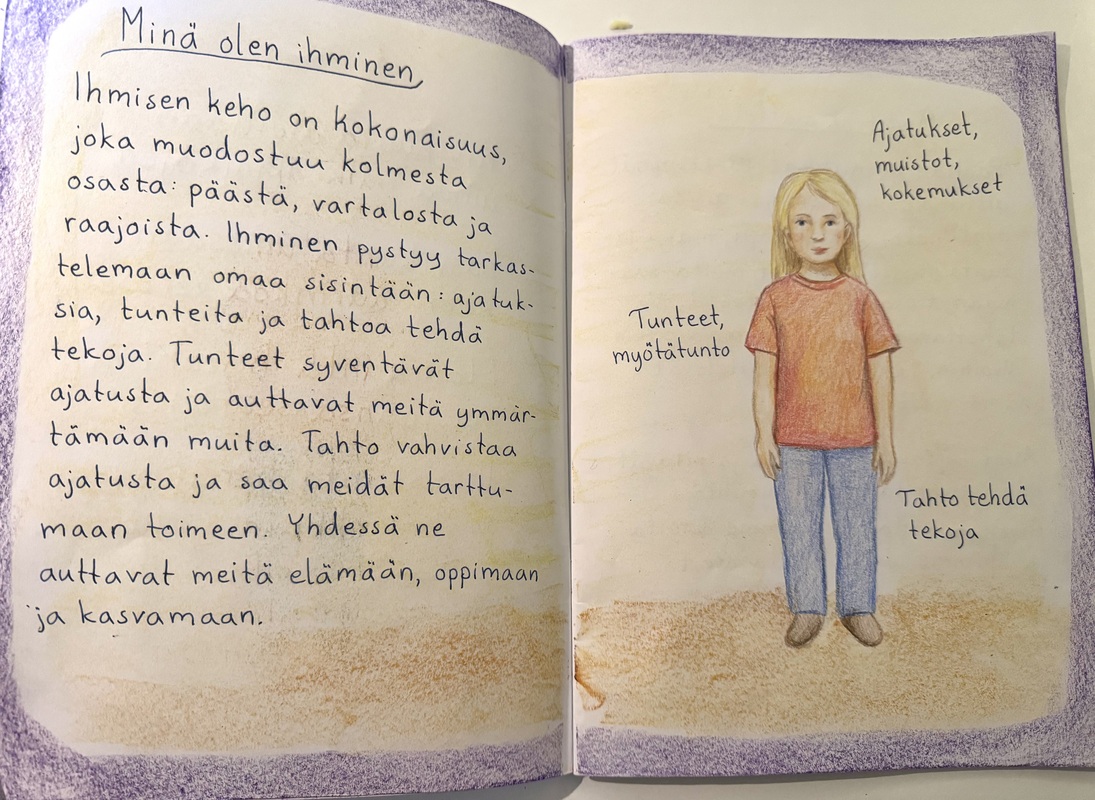 Minä olen ihminen
Ihmisen keho on kokonaisuus,
joka muodostuu kolmesta
osasta: päästä, vartalosta ja
raajoista. Ihminen pystyy tarkas-
telemaan omaa sisintään: ajatuk-
sia, tunteita ja tahtoa tehdä
tekoja. Tunteet syventävät
ajatusta ja auttavat meitä ymmär-
tämään muita. Tahto vahvistaa
ajatusta ja saa meidät tarttu-
maan toimeen. Yhdessä ne
auttavat meitä elämään, oppimaan
ja kasvamaan.
Ajatukset,
muistot,
kokemukset
Tunteet,
myötätunto
Tahto tehdä
tekoja